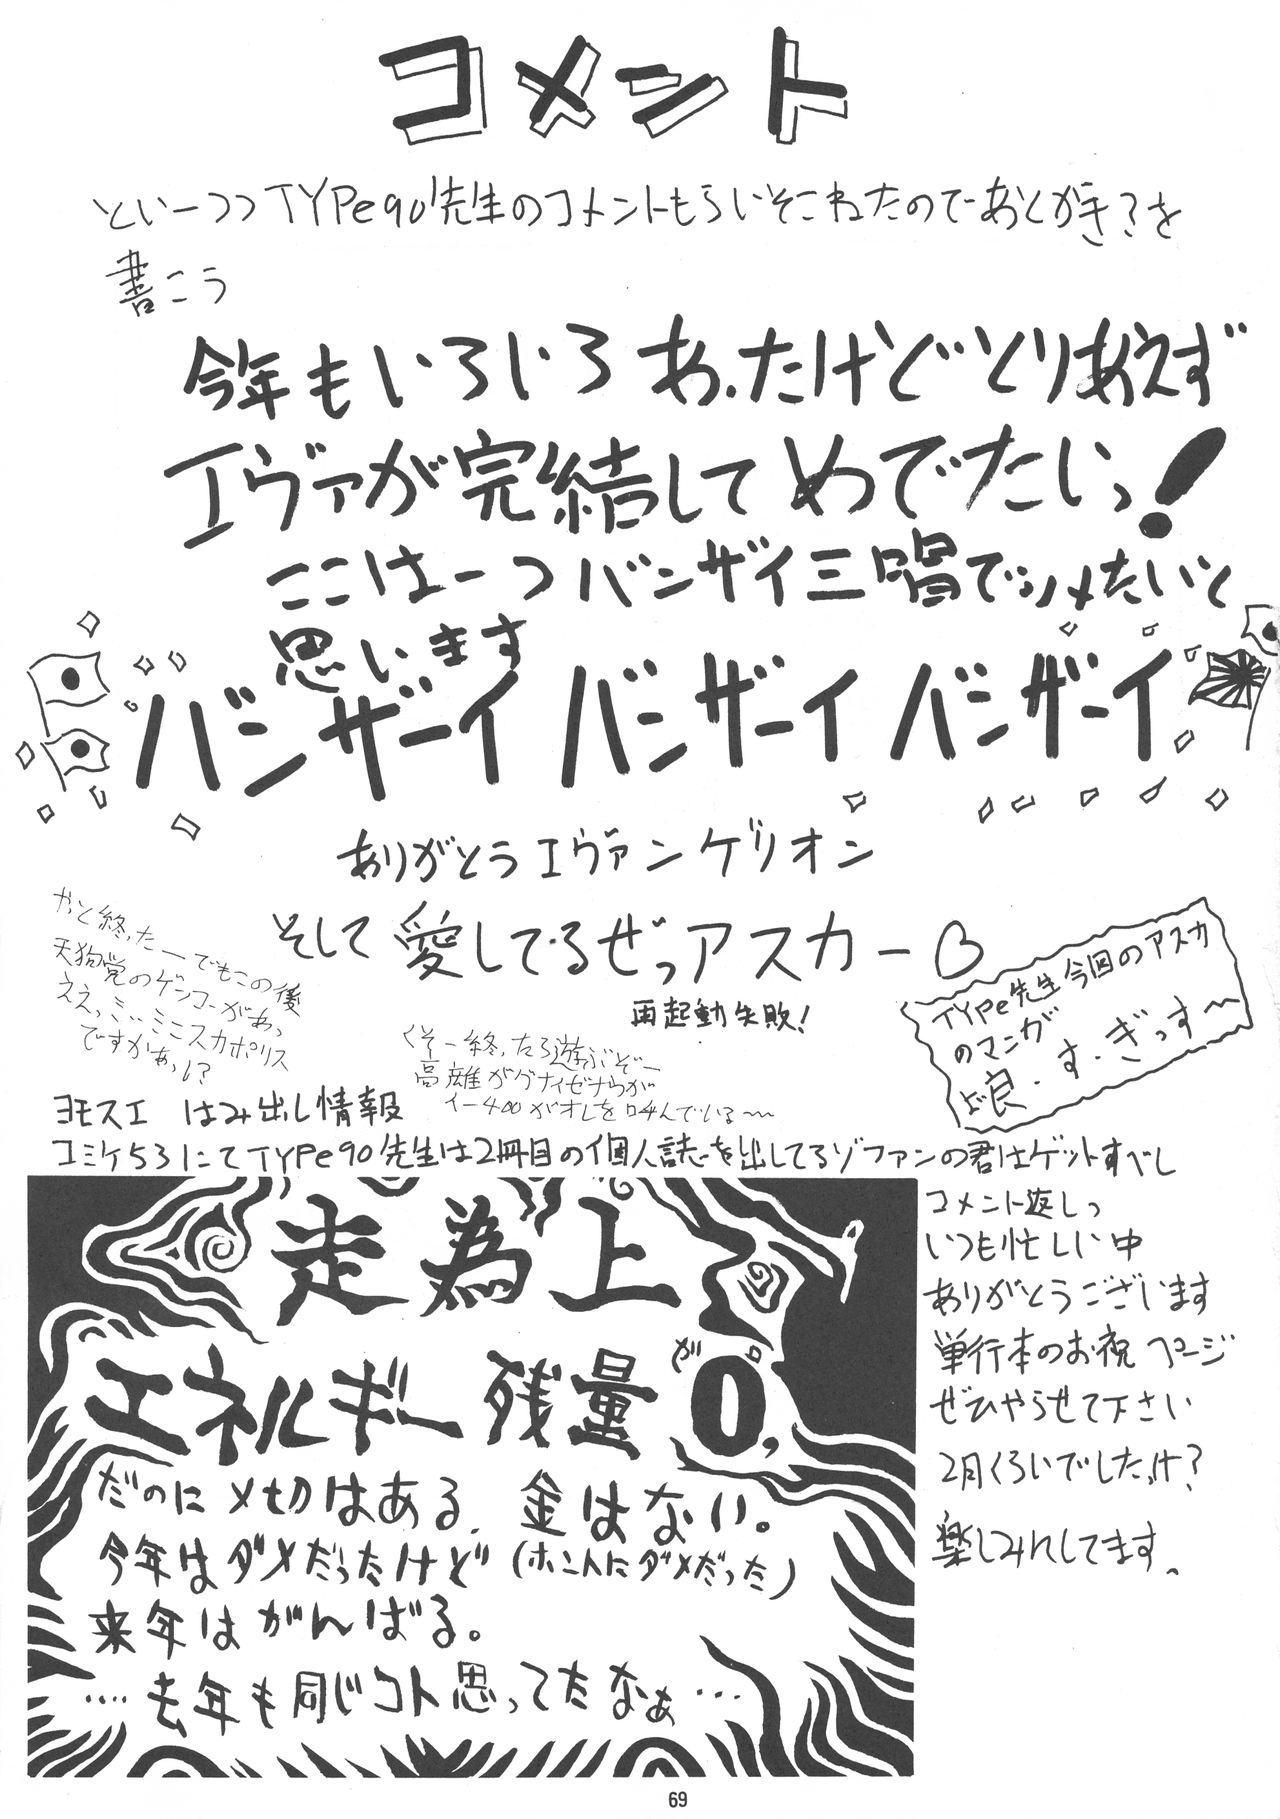 コメント
といーつつTYPe90先生のコメントもらいそこねたのでーあとがき?を
書こう
今年もいろいろあったけどとりあえず
エヴァが完結してめでたいっ!
ここは一つバンザイ三唱でシメたいと
思います
バンザーイ バンザーイ バンザーイ
ありがとうエヴァンゲリオン
そして愛してるぜっアスカー
再起動失敗!
やっと終ったーでもこの後
天狗党のゲンコーがあっ
ええっミ、ミニスカポリス
ですかあっ!?
くそー終ったら遊ぶぞー
高雄がグナイゼナウが
イー400がオレを呼んでいる〜
TYPe先生今回のアスカ
のマンガ
良
す・ぎっす〜
ヨモスエ はみ出し情報
コミケ53にてTYPe90先生は2冊目の個人誌を出してるゾファンの君はゲットすべし
コメント返しっ
いつも忙しい中
ありがとうございます
単行本のお祝ページ
ぜひやらせて下さい
2月くらいでしたっけ?
楽しみにしてます。
走為上
エネルギー残量が0,
ゼロ
だのに〆切はある、金はない。
今年はダメだったけど(ホントにダメだった)
来年はがんばる。
‥‥去年も同じコト思ってたなぁ‥‥
69